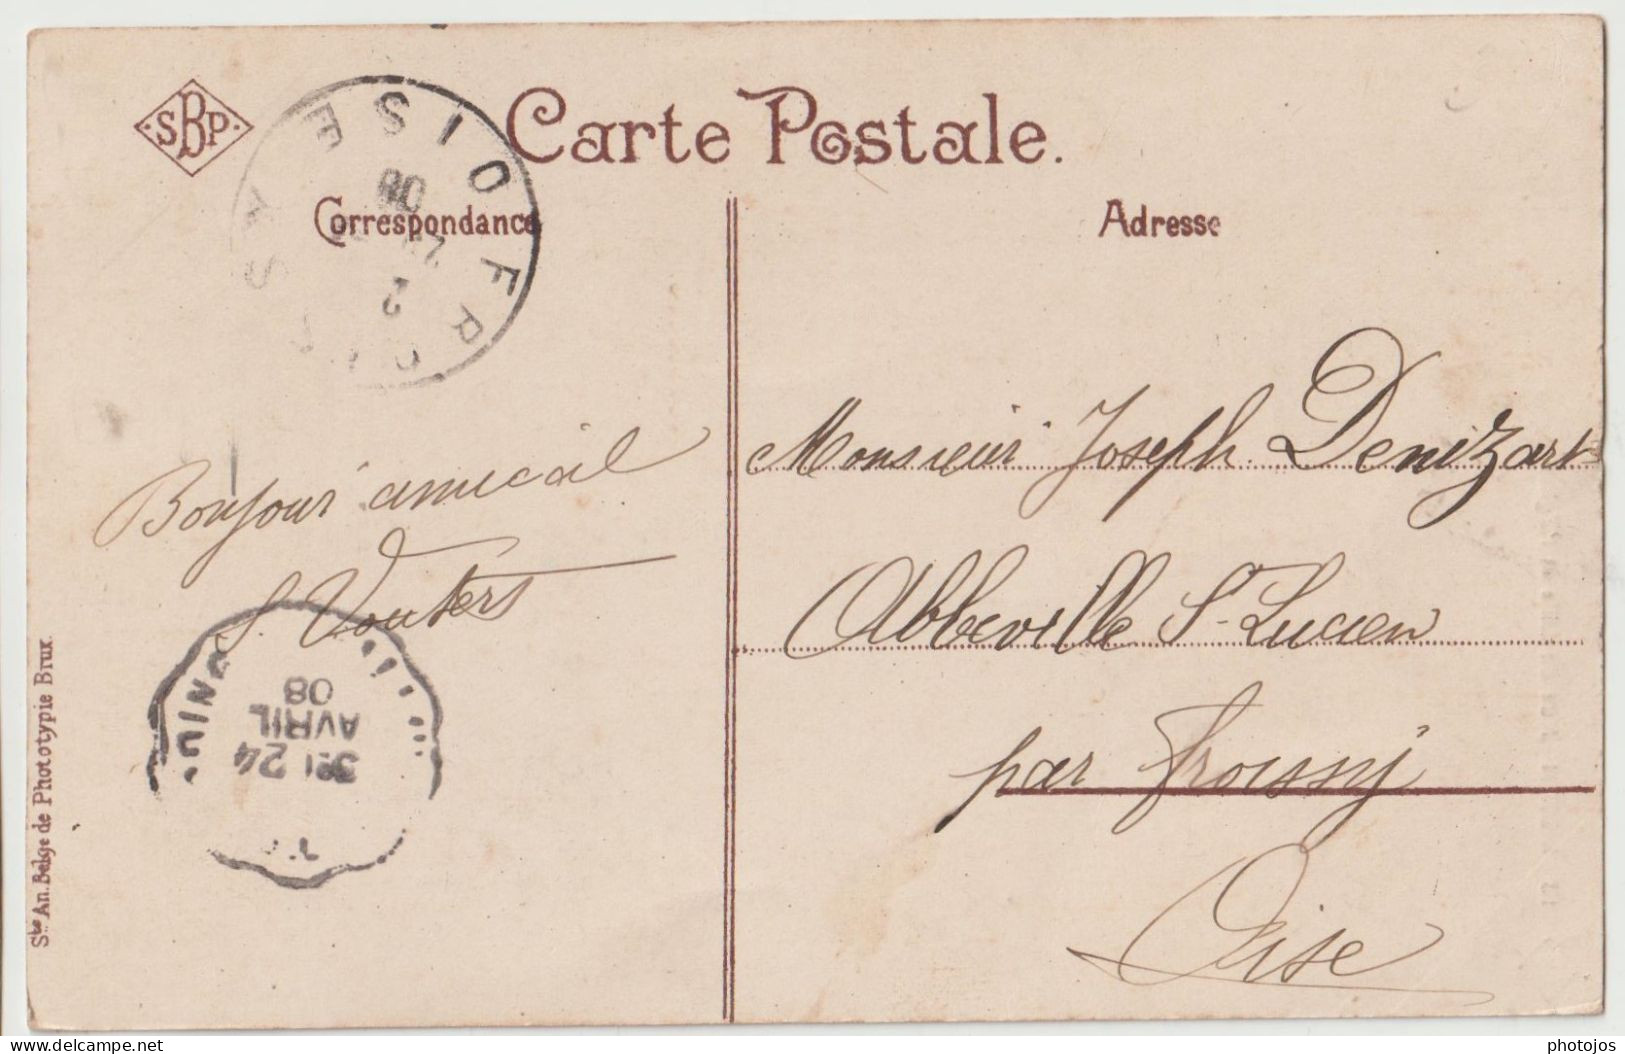 SBP
Carte Postale.
Correspondance
Adresse
OISE
FROISSY
08
2
Bonjour amical
S. Vouters
3E 24
AVRIL
08
Monsieur Joseph Denizart
Abbeville St Lucien
par Froissy
Oise
Sté An. Belge de Phototypie Brux.
delcampe.net
photojos